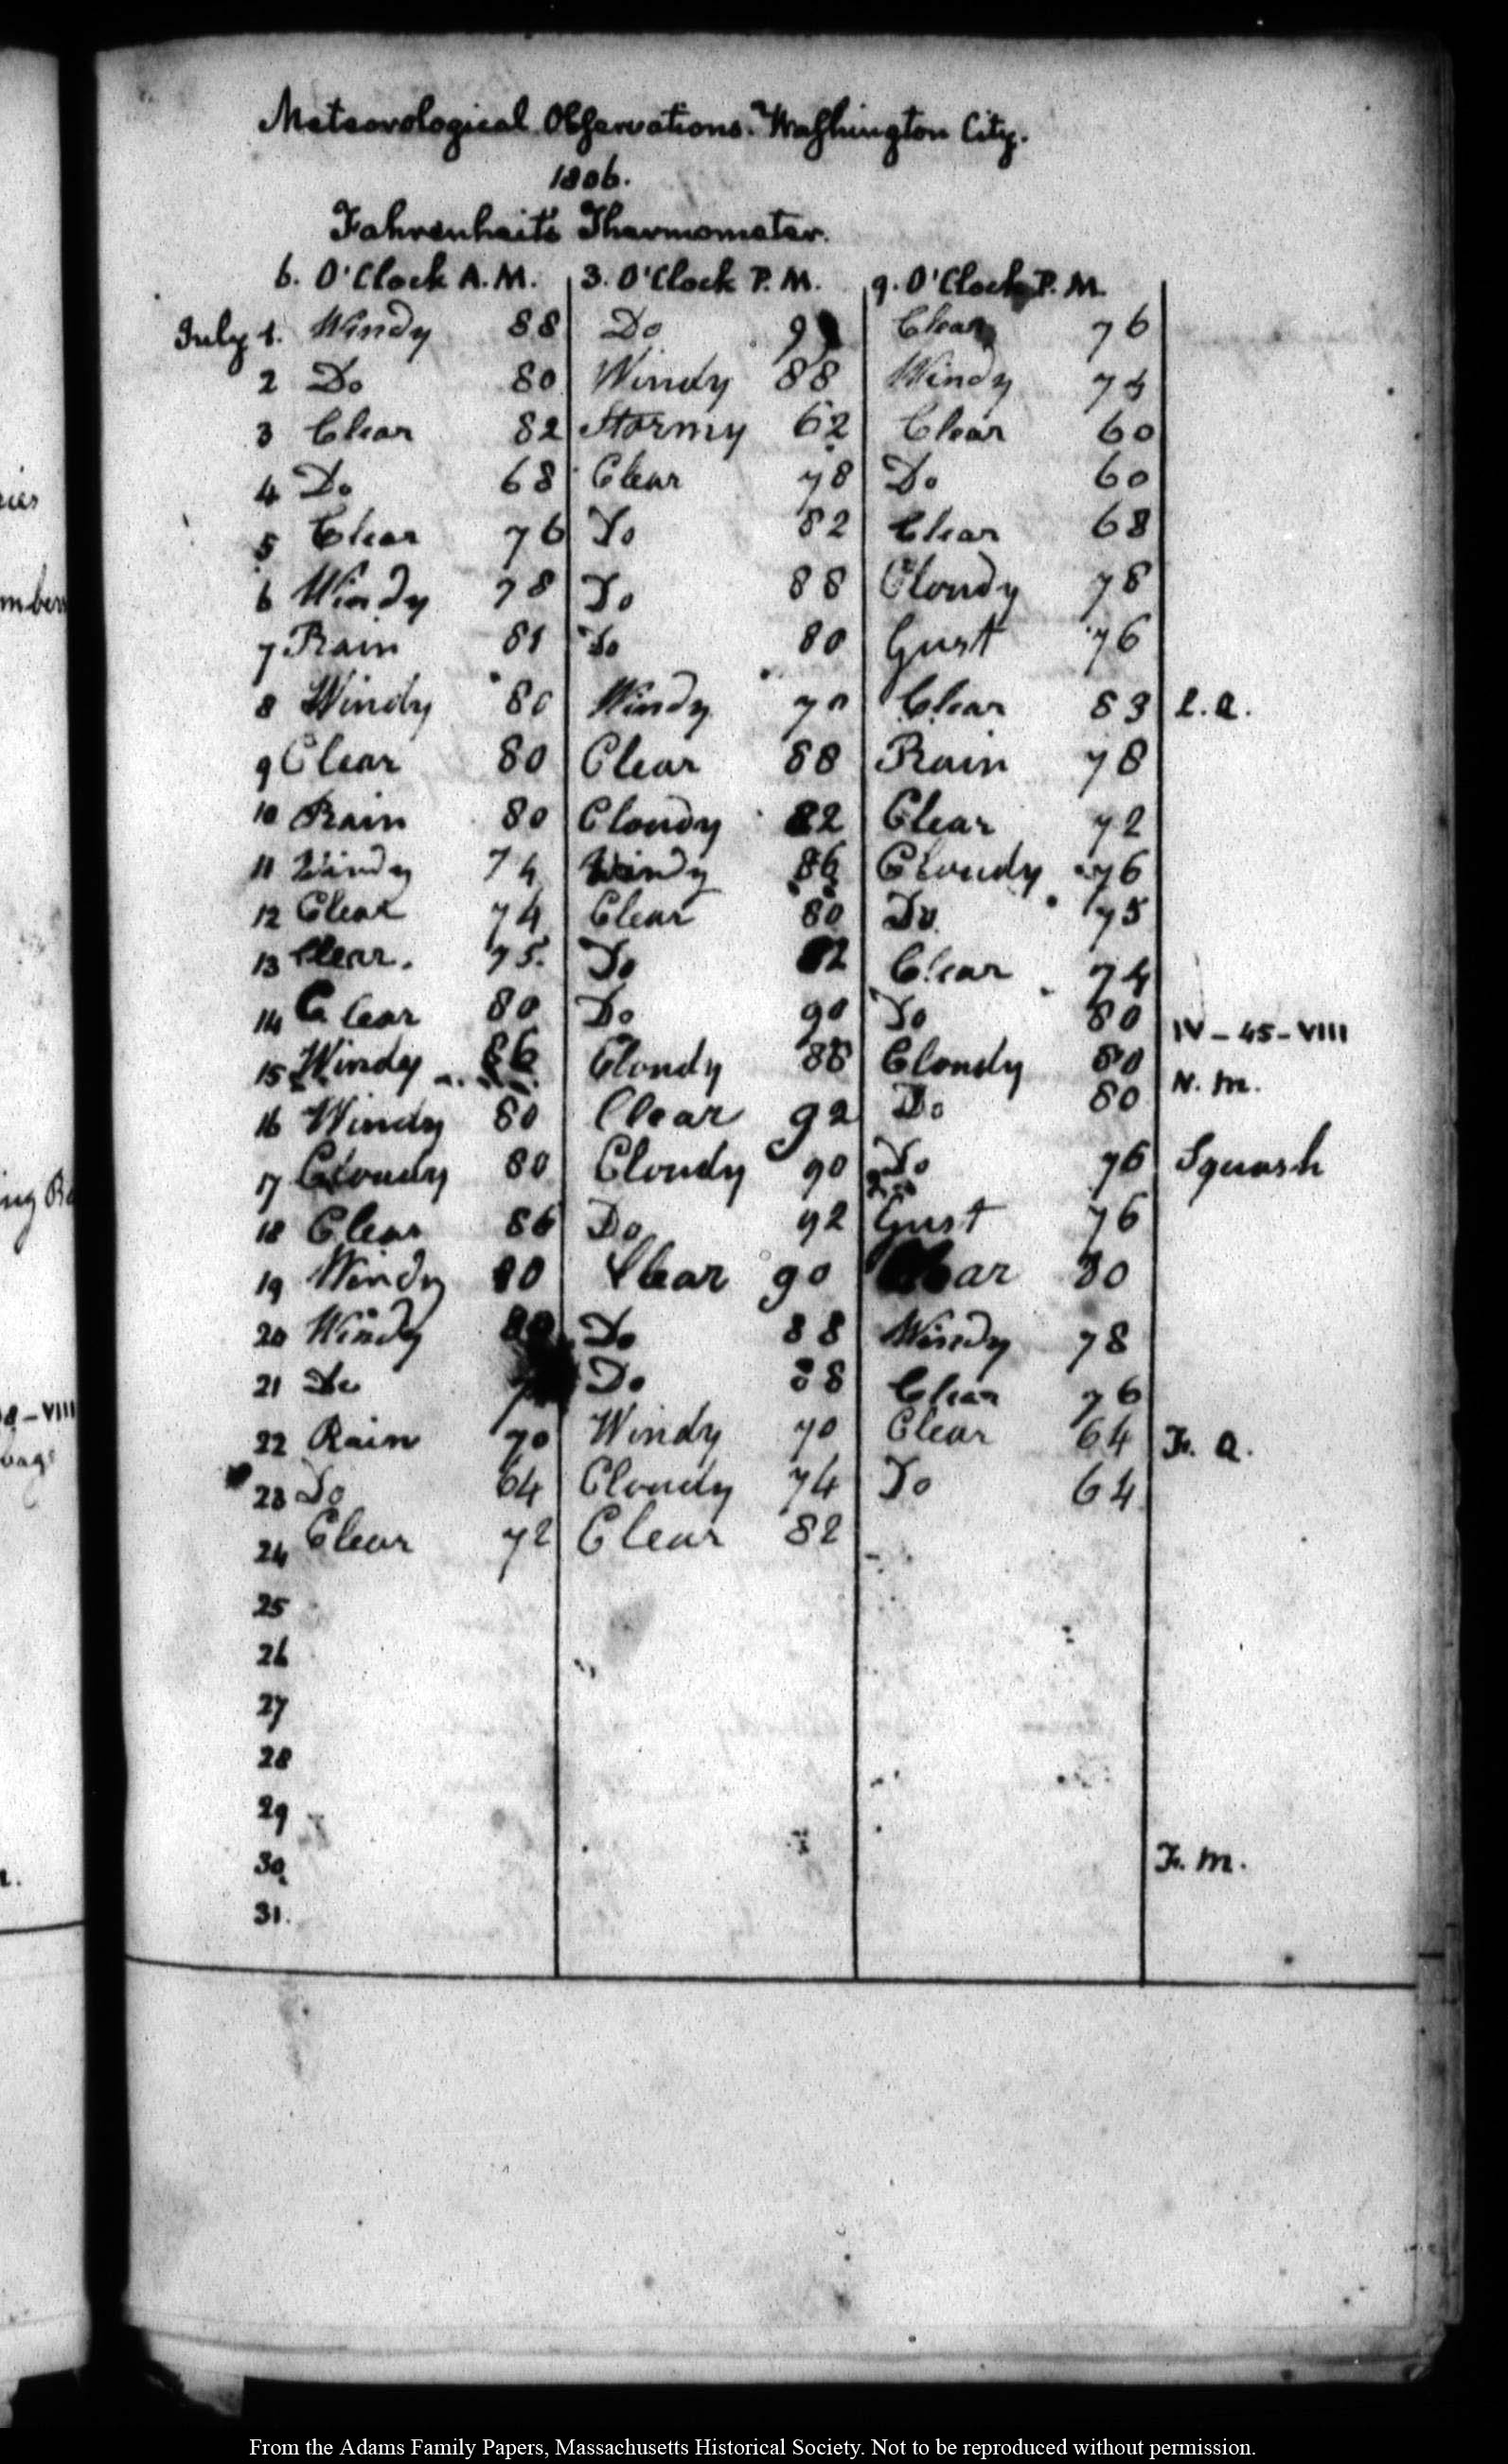 Meteorological Observations. Washington City.
1806.
Fahrenheit's Thermometer.
6. O'Clock A.M. 3. O'Clock P.M. 9. O'Clock P.M.
July 1. Windy 88 Do Clear 76
2 Do 80 Windy 88 Windy 74
3 Clear 82 Stormy 62 Clear 60
4 Do 68 Clear 78 Do 60
5 Clear 76 Do 82 Clear 68
6 Windy 78 Do 88 Cloudy 78
7 Rain 81 Do 80 Gust 76
8 Windy 80 Windy 70 Clear 83 L.Q.
9 Clear 80 Clear 88 Rain 78
10 Rain 80 Cloudy 82 Clear 72
11 Windy 74 Windy 86 Cloudy 76
12 Clear 74 Clear 80 Do 75
13 Clear. 75. Do 82 Clear 74
14 Clear 80 Do 90 Do 80 IV-45-VIII
15 Windy 86 Cloudy 88 Cloudy 80 N.M.
16 Windy 80 Clear 92 Do 80
17 Cloudy 80 Cloudy 90 Do 76 Squash
18 Clear 86 Do 92 Gust 76
19 Windy 80 Clear 90 Clear 80
20 Windy Do 88 Windy 78
21 Do Do 88 Clear 76
22 Rain 70 Windy 70 Clear 64 F. Q.
23 Do 64 Cloudy 74 Do 64
24 Clear 72 Clear 82
25
26
27
28
29
30 F. M.
31.
From the Adams Family Papers, Massachusetts Historical Society. Not to be reproduced without permission.